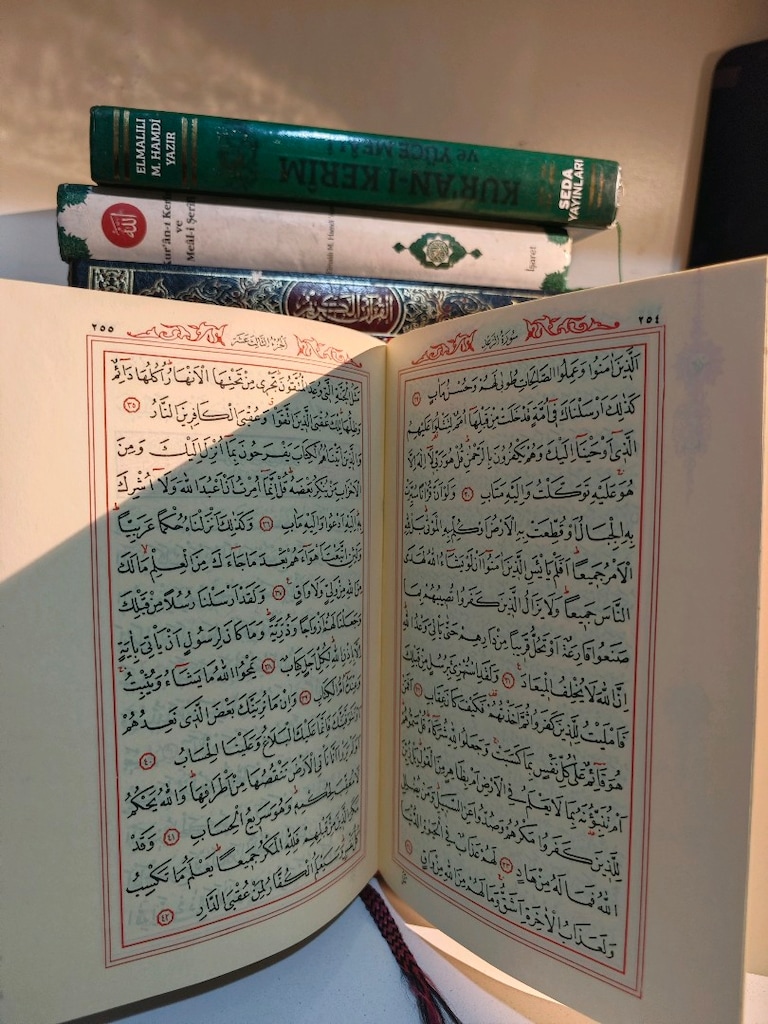 ELMALILI
M. HAMDİ
YAZIR
KUR'AN-I KERİM
ve YÜCE MEALİ
SEDA
YAYINLARI
الله
Kur'ân-ı Kerîm
ve
Meâl-i Şerîfi
İşaret
القرآن الكريم
٢٥٤
سُورَةُ الرَّعْدِ
اَلَّذ۪ينَ اٰمَنُوا وَعَمِلُوا الصَّالِحَاتِ طُوبٰى لَهُمْ وَحُسْنُ مَاٰبٍ ٢٩
كَذٰلِكَ اَرْسَلْنَاكَ ف۪ٓي اُمَّةٍ قَدْ خَلَتْ مِنْ قَبْلِهَٓا اُمَمٌ لِتَتْلُوَا عَلَيْهِمُ
الَّذ۪ٓي اَوْحَيْنَٓا اِلَيْكَ وَهُمْ يَكْفُرُونَ بِالرَّحْمٰنِ قُلْ هُوَ رَبّ۪ي لَٓا اِلٰهَ اِلَّا
هُوَ عَلَيْهِ تَوَكَّلْتُ وَاِلَيْهِ مَتَابِ ٣٠ وَلَوْ اَنَّ قُرْاٰنًا سُيِّرَتْ
بِهِ الْجِبَالُ اَوْ قُطِّعَتْ بِهِ الْاَرْضُ اَوْ كُلِّمَ بِهِ الْمَوْتٰى بَلْ لِلّٰهِ
الْاَمْرُ جَم۪يعًا اَفَلَمْ يَايْـَٔسِ الَّذ۪ينَ اٰمَنُٓوا اَنْ لَوْ يَشَٓاءُ اللّٰهُ لَهَدَى
النَّاسَ جَم۪يعًا وَلَا يَزَالُ الَّذ۪ينَ كَفَرُوا تُص۪يبُهُمْ بِمَا
صَنَعُوا قَارِعَةٌ اَوْ تَحُلُّ قَر۪يبًا مِنْ دَارِهِمْ حَتّٰى يَاْتِيَ وَعْدُ اللّٰهِ
اِنَّ اللّٰهَ لَا يُخْلِفُ الْم۪يعَادَ ٣١ وَلَقَدِ اسْتُهْزِئَ بِرُسُلٍ مِنْ قَبْلِكَ
فَاَمْلَيْتُ لِلَّذ۪ينَ كَفَرُوا ثُمَّ اَخَذْتُهُمْ فَكَيْفَ كَانَ عِقَابِ ٣٢ اَفَمَنْ
هُوَ قَٓائِمٌ عَلٰى كُلِّ نَفْسٍ بِمَا كَسَبَتْ وَجَعَلُوا لِلّٰهِ شُرَكَٓاءَ قُلْ سَمُّوهُمْ
اَمْ تُنَبِّؤُ۫نَهُ بِمَا لَا يَعْلَمُ فِي الْاَرْضِ اَمْ بِظَاهِرٍ مِنَ الْقَوْلِ بَلْ زُيِّنَ
لِلَّذ۪ينَ كَفَرُوا مَكْرُهُمْ وَصُدُّوا عَنِ السَّب۪يلِ وَمَنْ يُضْلِلِ
اللّٰهُ فَمَا لَهُ مِنْ هَادٍ ٣٣ لَهُمْ عَذَابٌ فِي الْحَيٰوةِ الدُّنْيَا
وَلَعَذَابُ الْاٰخِرَةِ اَشَقُّ وَمَا لَهُمْ مِنَ اللّٰهِ مِنْ وَاقٍ ٣٤
٢٥٥
اَلْجُزْءُ الثَّالِثَ عَشَرَ
مَثَلُ الْجَنَّةِ الَّت۪ي وُعِدَ الْمُتَّقُونَ تَجْر۪ي مِنْ تَحْتِهَا الْاَنْهَارُ اُكُلُهَا دَٓائِمٌ
وَظِلُّهَا تِلْكَ عُقْبَى الَّذ۪ينَ اتَّقَوْا وَعُقْبَى الْكَافِر۪ينَ النَّارُ ٣٥
وَالَّذ۪ينَ اٰتَيْنَاهُمُ الْكِتَابَ يَفْرَحُونَ بِمَٓا اُنْزِلَ اِلَيْكَ وَمِنَ
الْاَحْزَابِ مَنْ يُنْكِرُ بَعْضَهُ قُلْ اِنَّمَٓا اُمِرْتُ اَنْ اَعْبُدَ اللّٰهَ وَلَٓا اُشْرِكَ
بِه۪ اِلَيْهِ اَدْعُوا وَاِلَيْهِ مَاٰبِ ٣٦ وَكَذٰلِكَ اَنْزَلْنَاهُ حُكْمًا عَرَبِيًّا
وَلَئِنِ اتَّبَعْتَ اَهْوَٓاءَهُمْ بَعْدَ مَا جَٓاءَكَ مِنَ الْعِلْمِ مَا لَكَ
مِنَ اللّٰهِ مِنْ وَلِيٍّ وَلَا وَاقٍ ٣٧ وَلَقَدْ اَرْسَلْنَا رُسُلًا مِنْ قَبْلِكَ
وَجَعَلْنَا لَهُمْ اَزْوَاجًا وَذُرِّيَّةً وَمَا كَانَ لِرَسُولٍ اَنْ يَاْتِيَ بِاٰيَةٍ
اِلَّا بِاِذْنِ اللّٰهِ لِكُلِّ اَجَلٍ كِتَابٌ ٣٨ يَمْحُوا اللّٰهُ مَا يَشَٓاءُ وَيُثْبِتُ
وَعِنْدَهُٓ اُمُّ الْكِتَابِ ٣٩ وَاِنْ مَا نُرِيَنَّكَ بَعْضَ الَّذ۪ي نَعِدُهُمْ
اَوْ نَتَوَفَّيَنَّكَ فَاِنَّمَا عَلَيْكَ الْبَلَاغُ وَعَلَيْنَا الْحِسَابُ ٤٠
اَوَلَمْ يَرَوْا اَنَّا نَاْتِي الْاَرْضَ نَنْقُصُهَا مِنْ اَطْرَافِهَا وَاللّٰهُ يَحْكُمُ
لَا مُعَقِّبَ لِحُكْمِه۪ وَهُوَ سَر۪يعُ الْحِسَابِ ٤١ وَقَدْ
مَكَرَ الَّذ۪ينَ مِنْ قَبْلِهِمْ فَلِلّٰهِ الْمَكْرُ جَم۪يعًا يَعْلَمُ مَا تَكْسِبُ
كُلُّ نَفْسٍ وَسَيَعْلَمُ الْكُفَّارُ لِمَنْ عُقْبَى الدَّارِ ٤٢